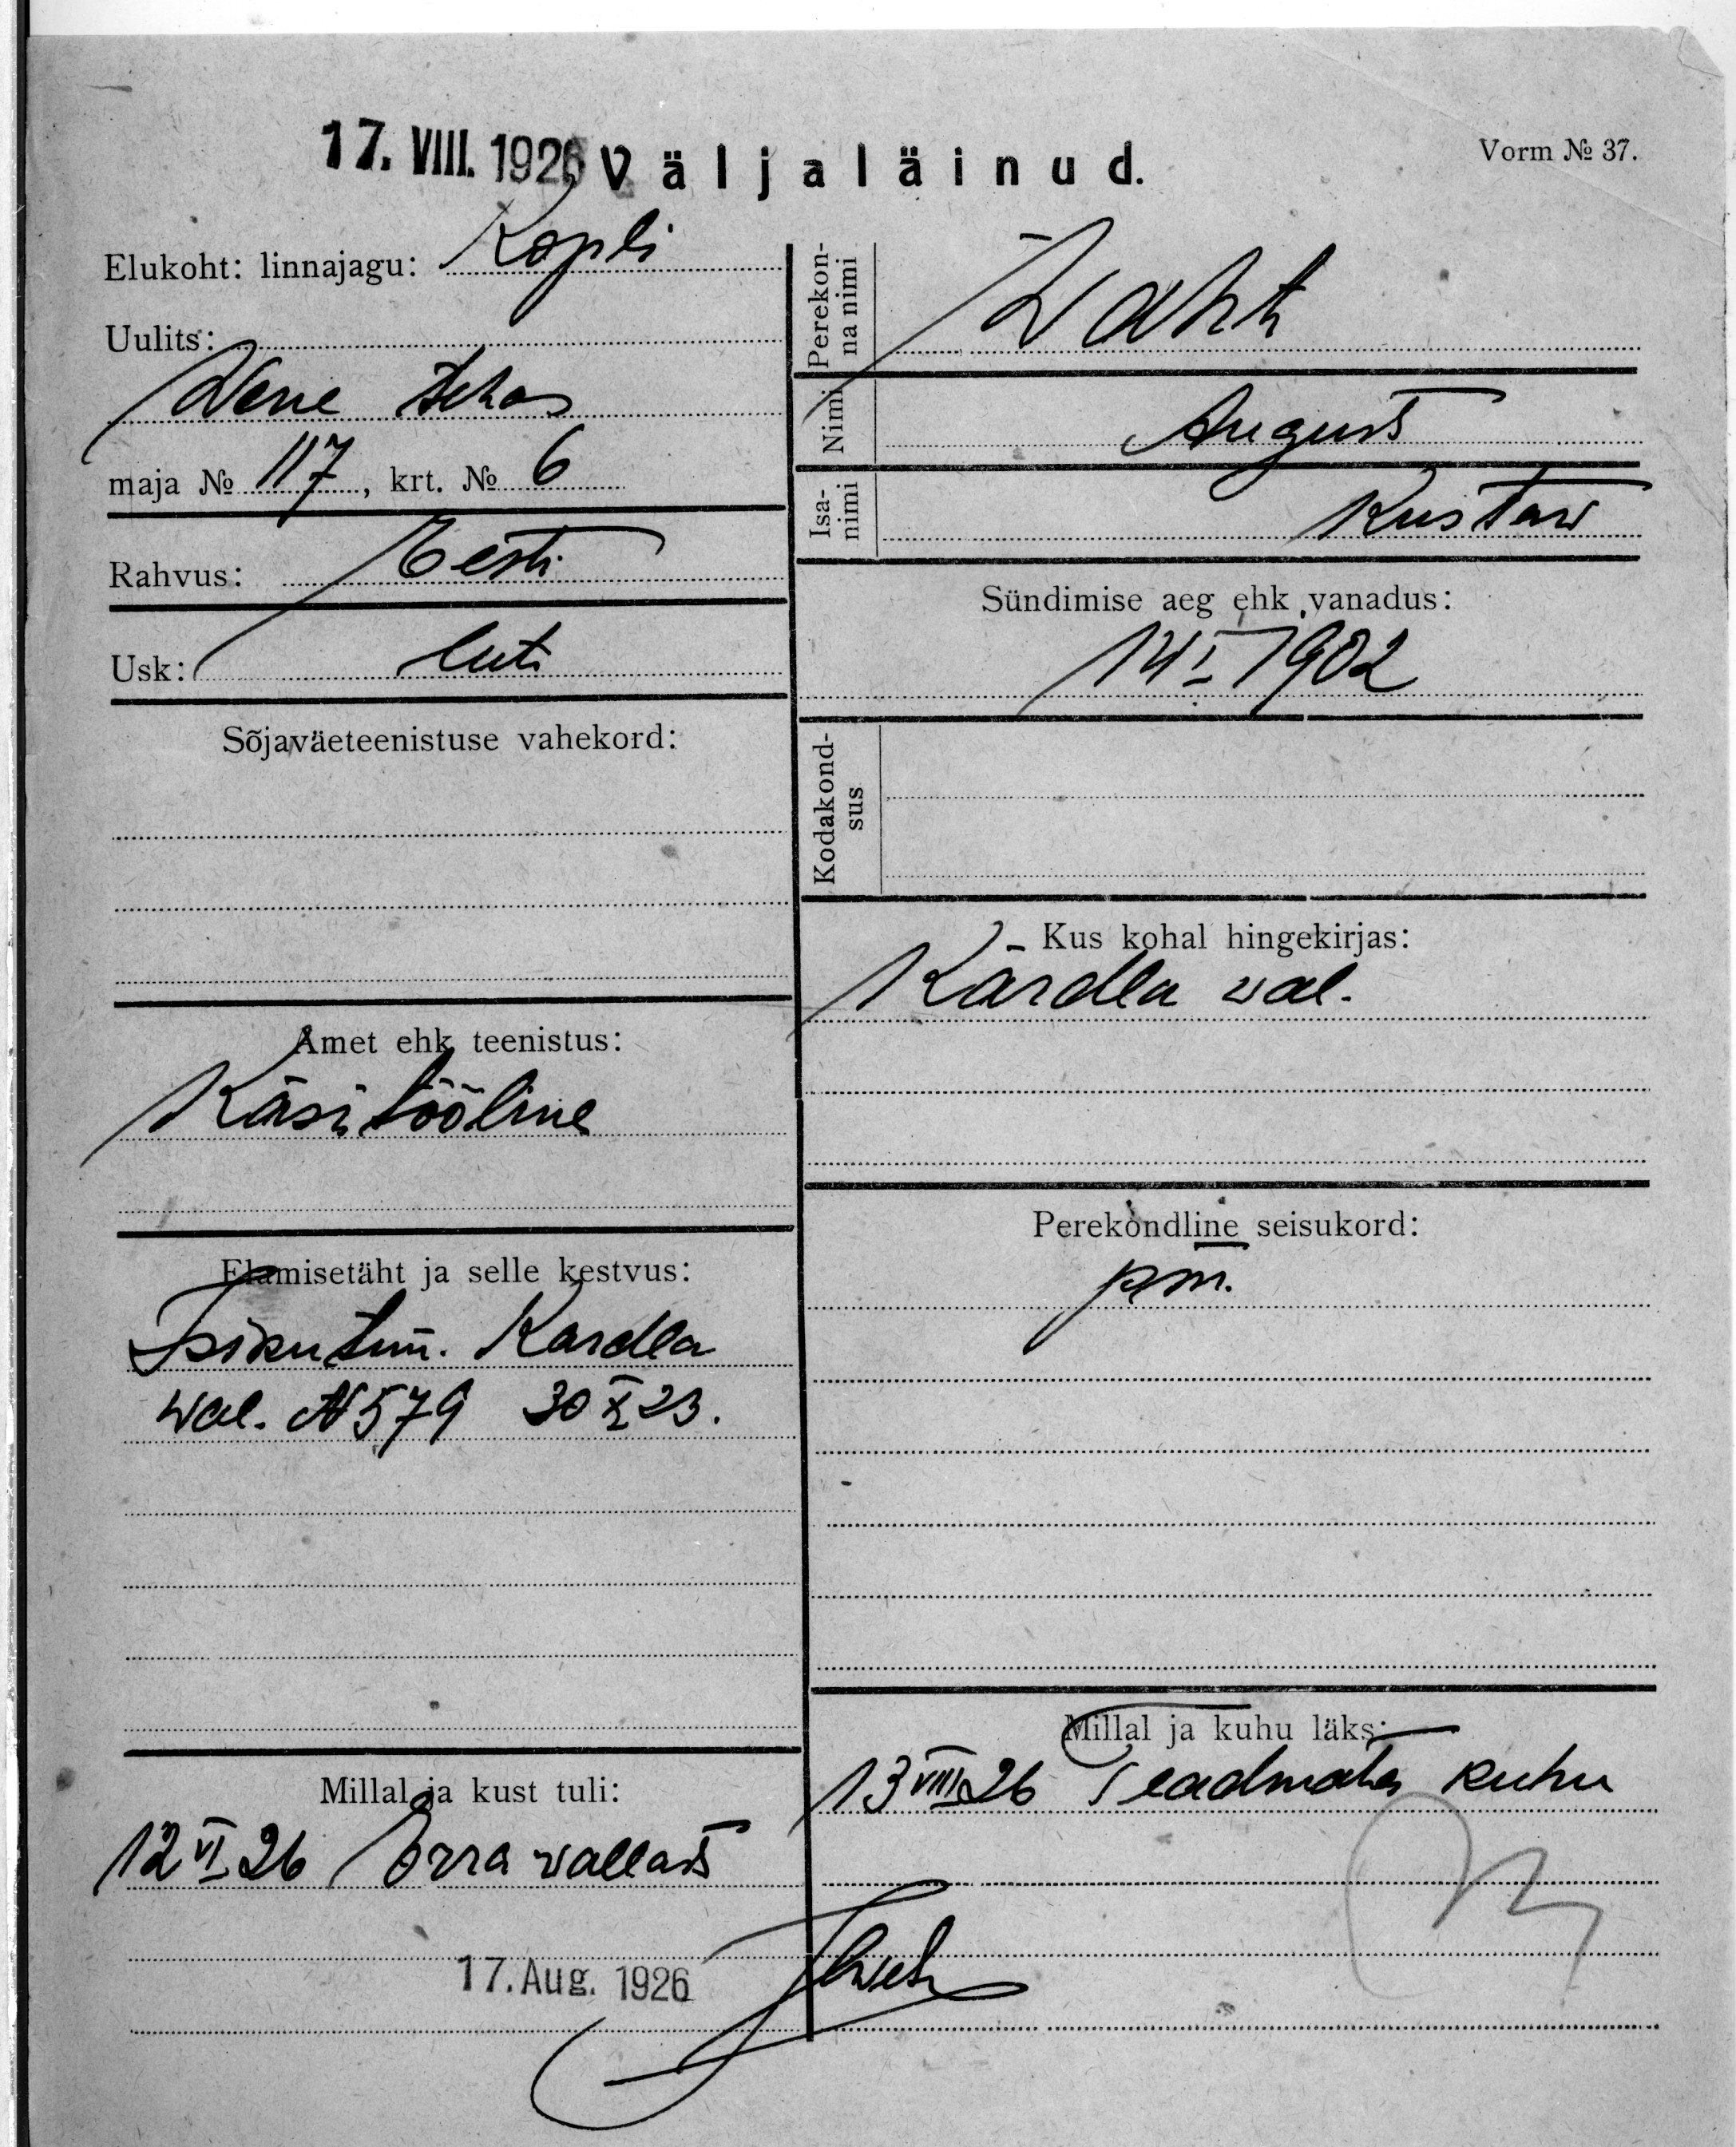 17. VIII. 1926 Väljaläinud.
Vorm № 37.
Elukoht: linnajagu: Kopli
Uulits:
Wene tehas
maja № 117, krt. № 6
Rahvus: Eesti
Usk: luti
Sõjaväeteenistuse vahekord:
Amet ehk teenistus:
Käsitööline
Elamisetäht ja selle kestvus:
Isikutun. Kärdla
wal. № 579 30 X 23.
Millal ja kust tuli:
12 VI 26 Erra vallast
17. Aug. 1926
Perekonna nimi
Waht
Nimi
August
Isanimi
Kustaw
Sündimise aeg ehk vanadus:
14 I 1902
Kodakondsus
Kus kohal hingekirjas:
Kärdla wal.
Perekondline seisukord:
pm.
Millal ja kuhu läks:
13 VIII 26 Teadmata kuhu